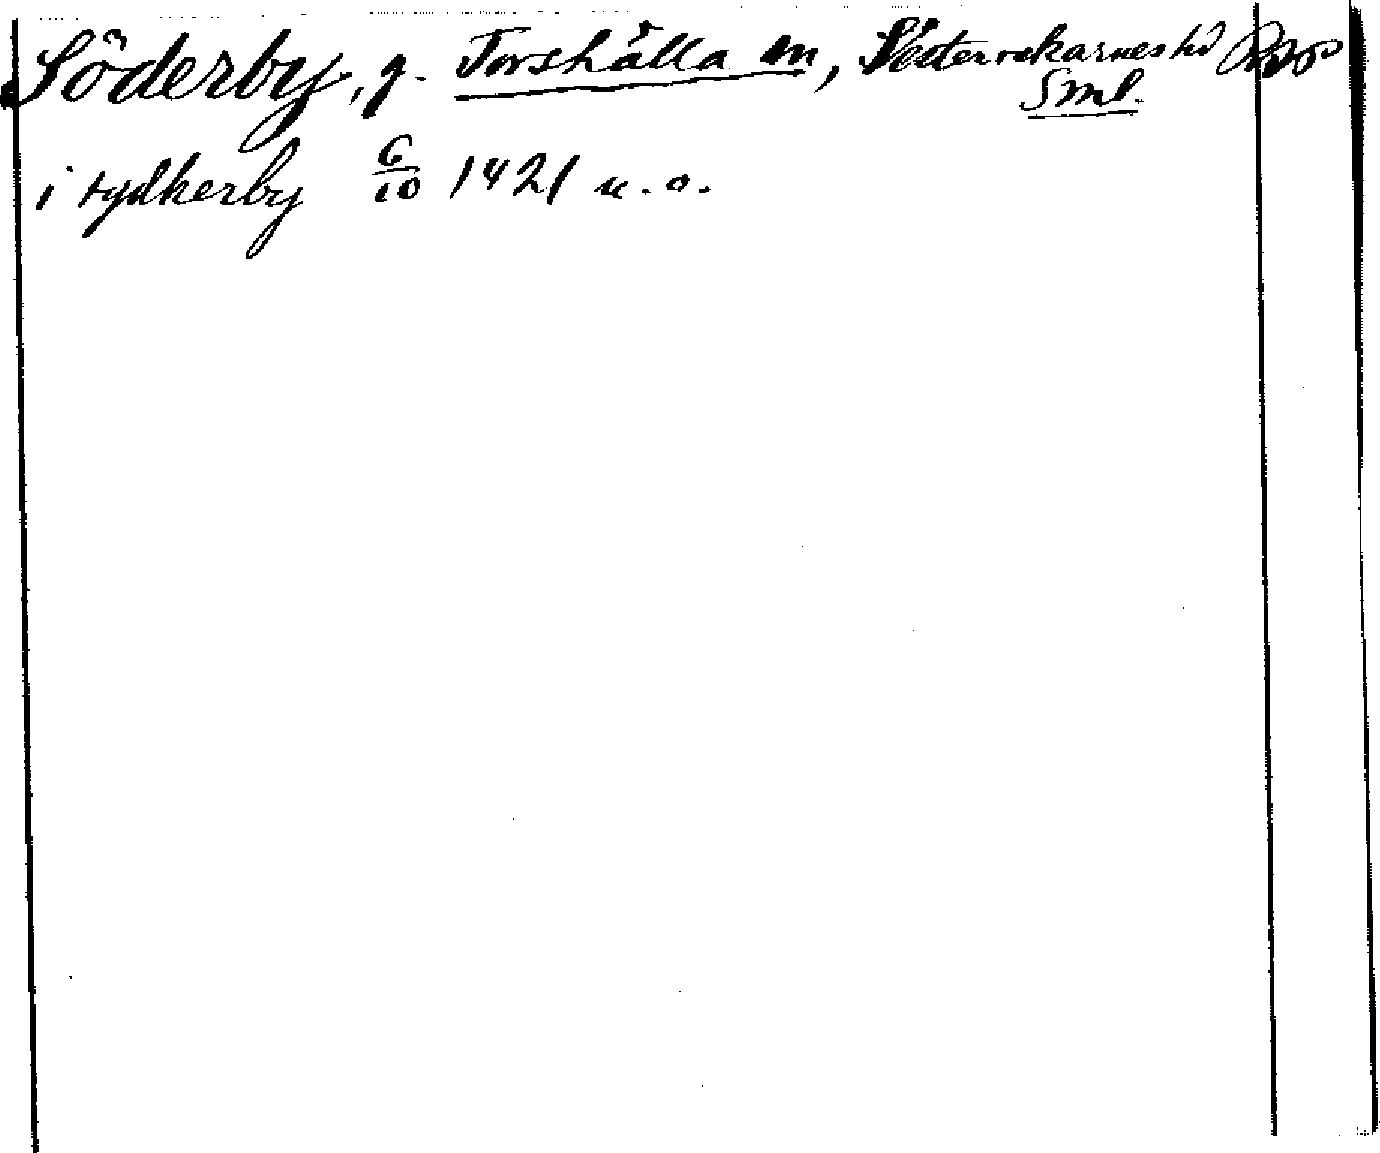 Söderby, g. Torshälla sn, Västerrekarnes hd
Sml.
i sydherby 6/10 1421 u. o.